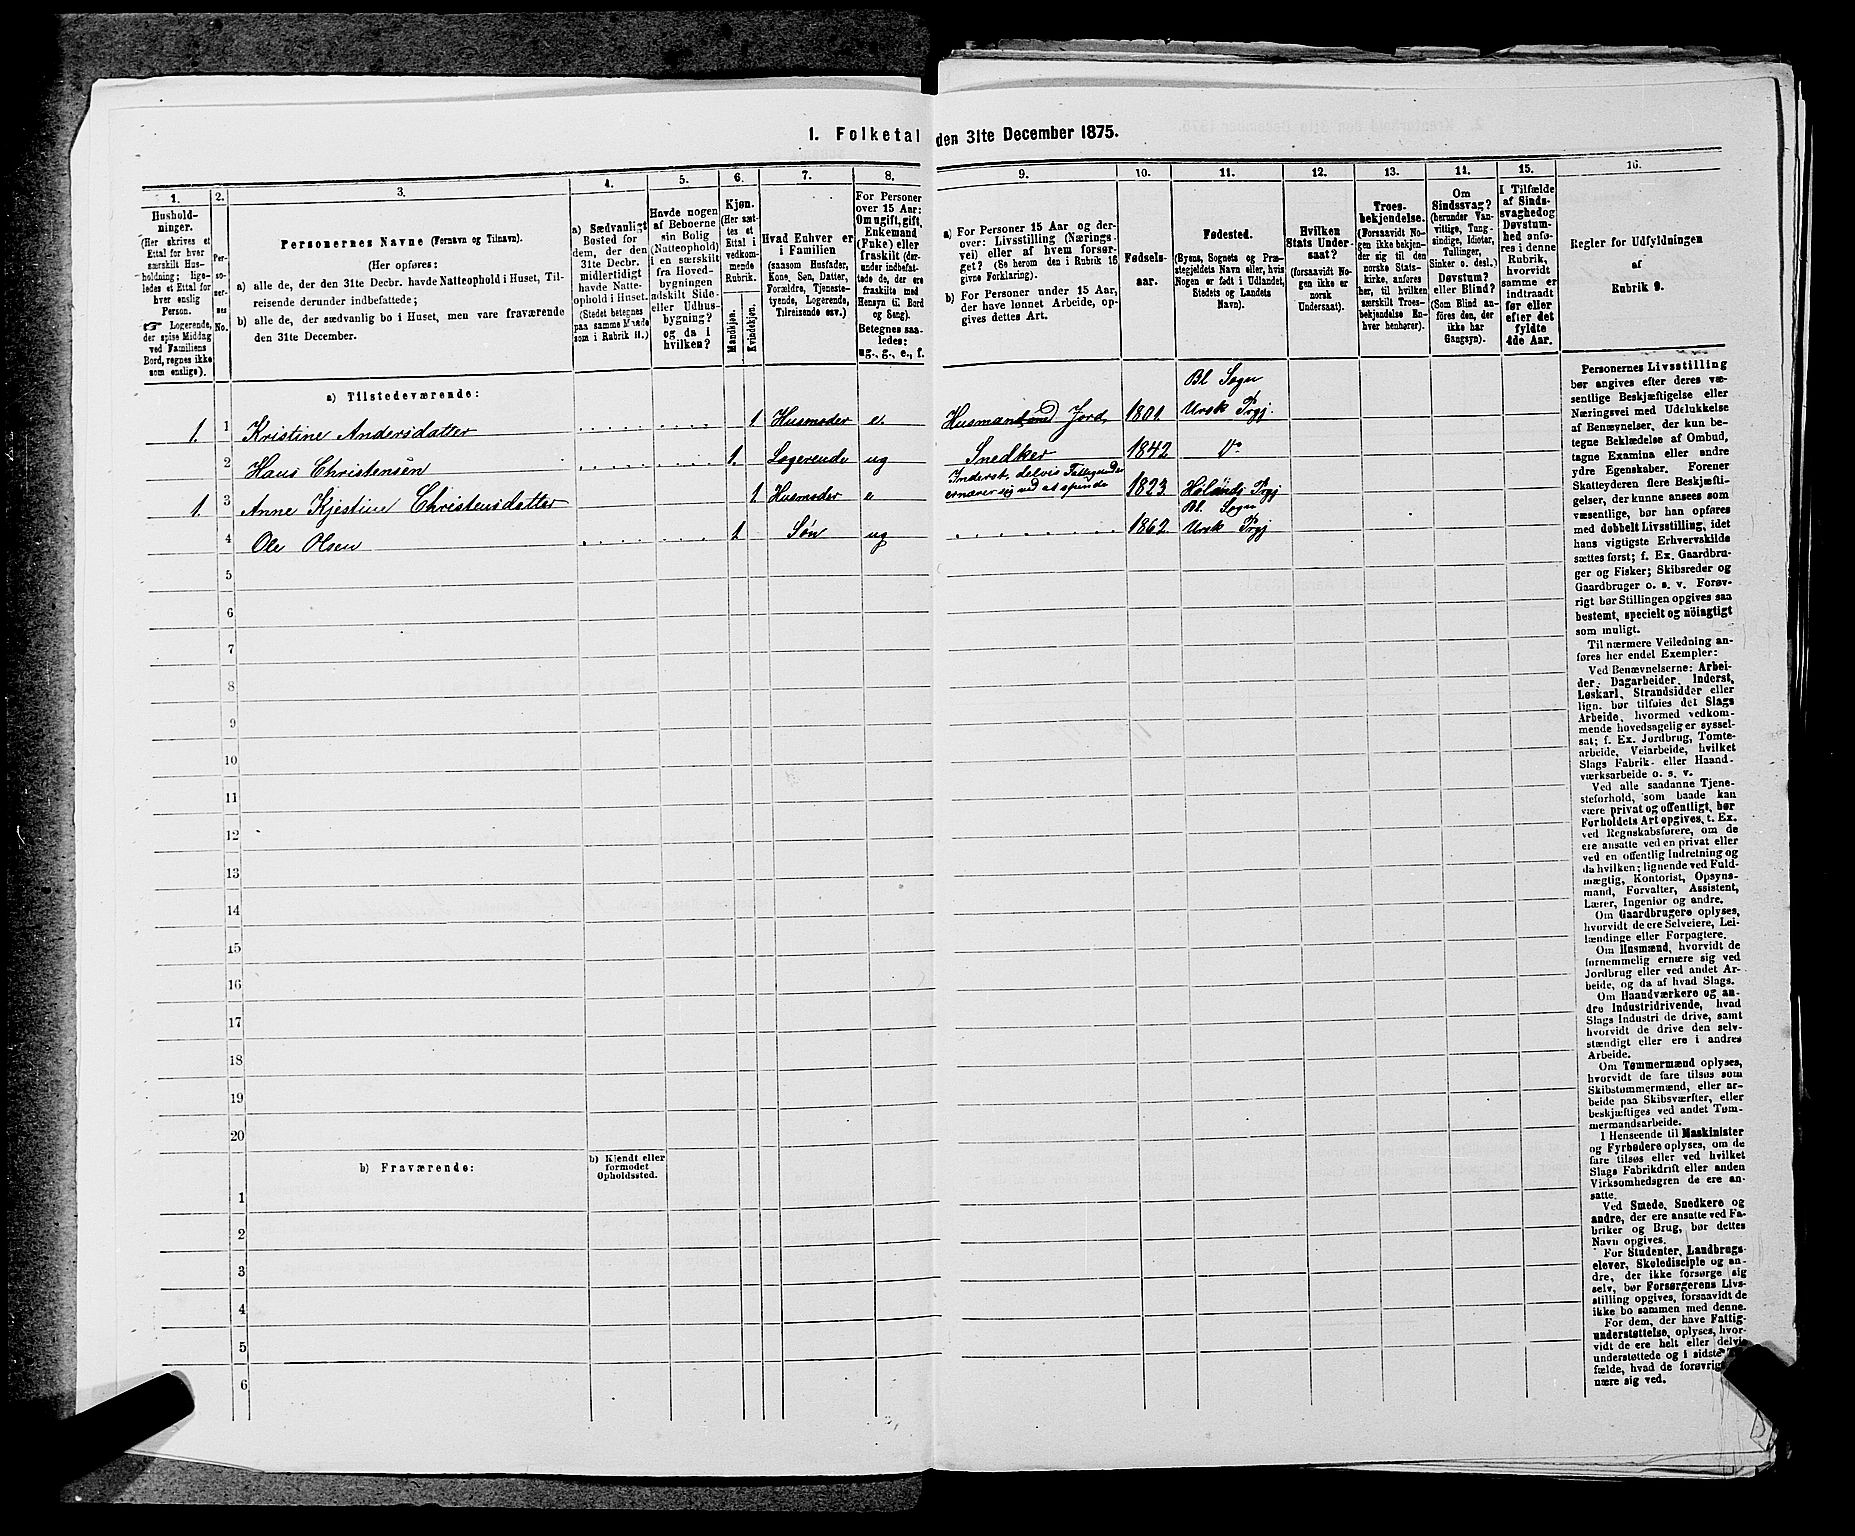 1. Folketal den 31te December 1875.
1.
2.
3.
4.
5.
6.
7.
8.
9.
10.
11.
12.
13.
14.
15.
16.
Hushold-
ninger.
(Her skrives et
Ettal for hver
særskilt Hus-
holdning; lige-
ledes et Ettal for
hver enslig
Person.
☞ Logerende,
der spise Middag
ved Familiens
Bord, regnes ikke
som enslige).
Per-
so-
ner-
nes
No.
Personernes Navne (Fornavn og Tilnavn).
(Her opføres:
a) alle de, der den 31te Decbr. havde Natteophold i Huset, Til-
reisende derunder indbefattede;
b) alle de, der sædvanlig bo i Huset, men vare fraværende
den 31te December.
a) Sædvanligt
Bosted for
dem, der den
31te Decbr.
midlertidigt
havde Natte-
ophold i Huset.
(Stedet betegnes
paa samme Maade
som i Rubrik 11.)
Havde nogen
af Beboerne
sin Bolig
(Natteophold)
i en særskilt
fra Hoved-
bygningen
adskilt Side-
eller Udhus-
bygning?
og da i
hvilken?
Kjøn.
(Her sæt-
tes et
Ettal i
vedkom-
mende
Rubrik.
Mandkjøn.
Kvindekjøn.
Hvad Enhver er
i Familien
(saasom Husfader,
Kone, Søn, Datter,
Forældre, Tjeneste-
tyende, Logerende,
Tilreisende osv.)
For Personer
over 15 Aar:
Om ugift, gift,
Enkemand
(Enke) eller
fraskilt (der-
under indbefat-
tede de, der ere
fraskilte med
Hensyn til Bord
og Seng).
Betegnes saa-
ledes:
ug., g., e., f.
a) For Personer 15 Aar og der-
over: Livsstilling (Nærings-
vei) eller af hvem forsør-
get? (Se herom den i Rubrik 16
givne Forklaring).
b) For Personer under 15 Aar,
der have lønnet Arbeide, op-
gives dettes Art.
Fødsels-
aar.
Fødested.
(Byens, Sognets og Præ-
stegjeldets Navn eller, hvis
Nogen er født i Udlandet,
Stedets og Landets
Navn).
Hvilken
Stats Under-
saat?
(forsaavidt No-
gen ikke er
norsk
Undersaat).
Troes-
bekjendelse.
(Forsaavidt No-
gen ikke bekjen-
der sig til den
norske Stats-
kirke, anføres
her, til hvilken
særskilt Troes-
bekjendelse En-
hver henhører).
Om
Sindssvag?
(herunder Van-
vittige, Tung-
sindige, Idioter,
Tullinger,
Sinker o. desl.)
Døvstum?
eller Blind?
(Som Blind an-
føres den, der
ikke har
Gangsyn).
I Tilfælde
af Sinds-
svaghed og
Døvstum-
hed anfø-
res i denne
Rubrik,
hvorvidt
samme er
indtraadt
før eller
efter det
fyldte
4de Aar.
Regler for Udfyldningen
af
Rubrik 9.
a) Tilstedeværende:
1. 1 Kristine Andersdatter 1 Husmoder e. Husmand med Jord, 1801 Bl Sogn
Ursk Prgj.
2 Hans Christensen 1. Logerende ug Snedker 1842 Do
1. 3 Anne Kjestine Christensdatter 1 Husmoder e Inderst, delvis Fattigunder
ernærer sig ved at spinde 1823 Hølands Prgj
4 Ole Olsen 1 Søn ug 1862 Bl. Sogn
Ursk Prgj
5
6
7
8
9
10
11
12
13
14
15
16
17
18
19
20
b) Fraværende:
b) Kjendt eller
formodet
Opholdssted.
1
2
3
4
5
6
Personernes Livsstilling
bør angives efter deres væ-
sentlige Beskjæftigelse eller
Næringsvei med Udelukkelse
af Benævnelser, der kun be-
tegne Beklædelse af Ombud,
tagne Examina eller andre
ydre Egenskaber. Forener
Skatteyderen flere Beskjæfti-
gelser, der kunne ansees som
væsentlige, bør han opføres
med dobbelt Livsstilling, idet
hans vigtigste Erhvervskilde
sættes først; f. Ex. Gaardbru-
ger og Fisker; Skibsreder og
Gaardbruger o. s. v. Forøv-
rigt bør Stillingen opgives saa
bestemt, specielt og nöiagtigt
som muligt.
Til nærmere Veiledning an-
føres her endel Exempler:
Ved Benævnelserne: Arbei-
der, Dagarbeider, Inderst,
Løskarl, Strandsidder eller
lign. bør tilføies det Slags
Arbeide, hvormed vedkom-
mende hovedsagelig er syssel-
sat; f. Ex. Jordbrug, Tomte-
arbeide, Veiarbeide, hvilket
Slags Fabrik- eller Haand-
værksarbeide o. s. v.
Ved alle saadanne Tjene-
steforhold, som baade kan
være privat og offentligt, bør
Forholdets Art opgives, t. Ex.
ved Regnskabsførere, om de
ere ansatte ved en privat eller
ved en offentlig Indretning og
da hvilken; lignende ved Fuld-
mægtig, Kontorist, Opsyns-
mand, Forvalter, Assistent,
Lærer, Ingeniør og andre.
Om Gaardbrugere oplyses,
hvorvidt de ere Selveiere, Lei-
lændinge eller Forpagtere.
Om Husmænd, hvorvidt de
fornemmelig ernære sig ved
Jordbrug eller ved andet Ar-
beide, og da af hvad Slags.
Om Haandværkere og an-
dre Industridrivende, hvad
Slags Industri de drive, samt
hvorvidt de drive den selv-
stændigt eller ere i andres
Arbeide.
Om Tømmermænd oplyses,
hvorvidt de fare tilsøs som
Skibstømmermænd, eller ar-
beide paa Skibsværfter, eller
beskjæftiges ved andet Tøm-
mermandsarbeide.
I Henseende til Maskinister
og Fyrbødere oplyses, om de
fare tilsøs eller ved hvilket
Slags Fabrikdrift eller anden
Virksomhedsgren de ere an-
satte.
Ved Smede, Snedkere og
andre, der ere ansatte ved Fa-
briker og Brug, bør dettes
Navn opgives.
For Studenter, Landbrugs-
elever, Skoledisciple og an-
dre, der ikke forsørge sig
selv, bør Forsørgerens Livs-
stilling opgives, forsaavidt de
ikke bo sammen med denne.
For dem, der have Fattig-
understøttelse, oplyses, hvor-
vidt de ere helt eller delvis
understøttede og i sidste
fælde, hvad de forøvrigt
nære sig ved.